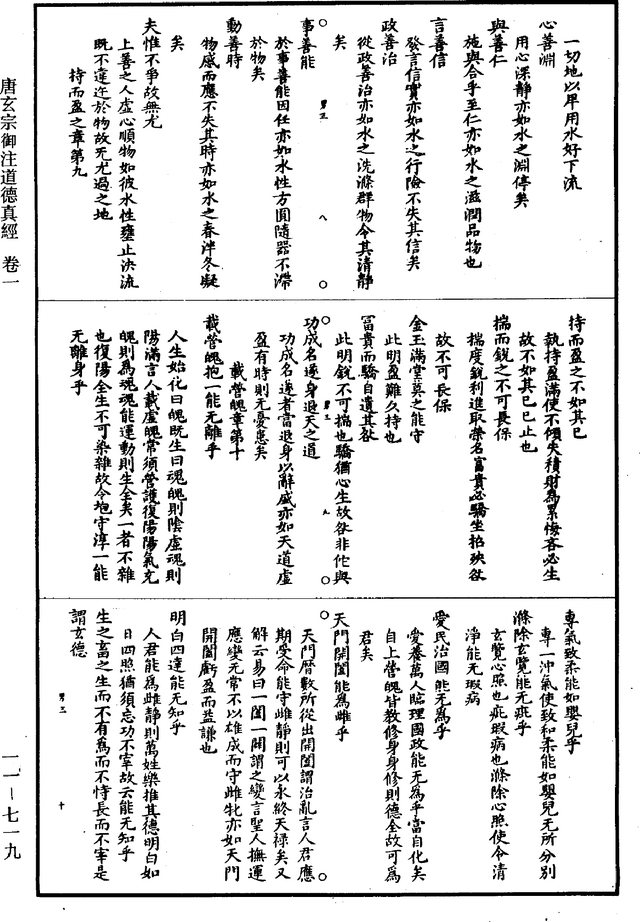 一切地以卑用水好下流
心善淵
用心深靜亦如水之淵停矣
與善仁
施與合乎至仁亦如水之滋潤品物也
言善信
發言信實亦如水之行險不失其信矣
政善治
從政善治亦如水之洗滌群物令其清靜
矣
事善能
於事善能因任亦如水性方圓隨器不滯
於物矣
動善時
物感而應不失其時亦如水之春泮冬凝
矣
夫惟不爭故無尤
上善之人虛心順物如彼水性壅止決流
既不違迕於物故无尤過之地
持而盈之章第九
持而盈之不如其已
執持盈滿使不傾失積財為累悔吝必生
故不如其已已止也
揣而銳之不可長保
揣度銳利進取榮名富貴必驕坐招殃咎
故不可長保
金玉滿堂莫之能守
此明盈難久持也
富貴而驕自遺其咎
此明銳不可揣也驕猶心生故咎非佗與
功成名遂身退天之道
功成名遂者當退身以辭盛亦如天道虛
盈有時則无憂患矣
載營魄章第十
載營魄抱一能无離乎
人生始化曰魄既生曰魂魄則陰虛魂則
陽滿言人載虛魄常須營護復陽陽氣充
魄則為魂魂能運動則生全矣一者不雜
也復陽全生不可染雜故令抱守淳一能
无離身乎
專氣致柔能如嬰兒乎
專一沖氣使致和柔能如嬰兒无所分別
滌除玄覽能无疵乎
玄覽心照也疵瑕病也滌除心照使令清
淨能无瑕病
愛民治國能无為乎
愛養萬人臨理國政能无為乎當自化矣
自上營魄皆教修身身修則德全故可為
君矣
天門開闔能為雌乎
天門曆數所從出開闔謂治亂言人君應
期受命能守雌靜則可以永終天祿矣又
解云易曰一闔一闢謂之變言聖人撫運
應變无常不以雄成而守雌牝亦如天門
開闔虧盈而益謙也
明白四達能无知乎
人君能為雌靜則萬姓樂推其德明白如
日四照猶須忘功不宰故云能无知乎
生之畜之生而不有為而不恃長而不宰是
謂玄德
唐玄宗御注道德真經 卷一
一一—七一九